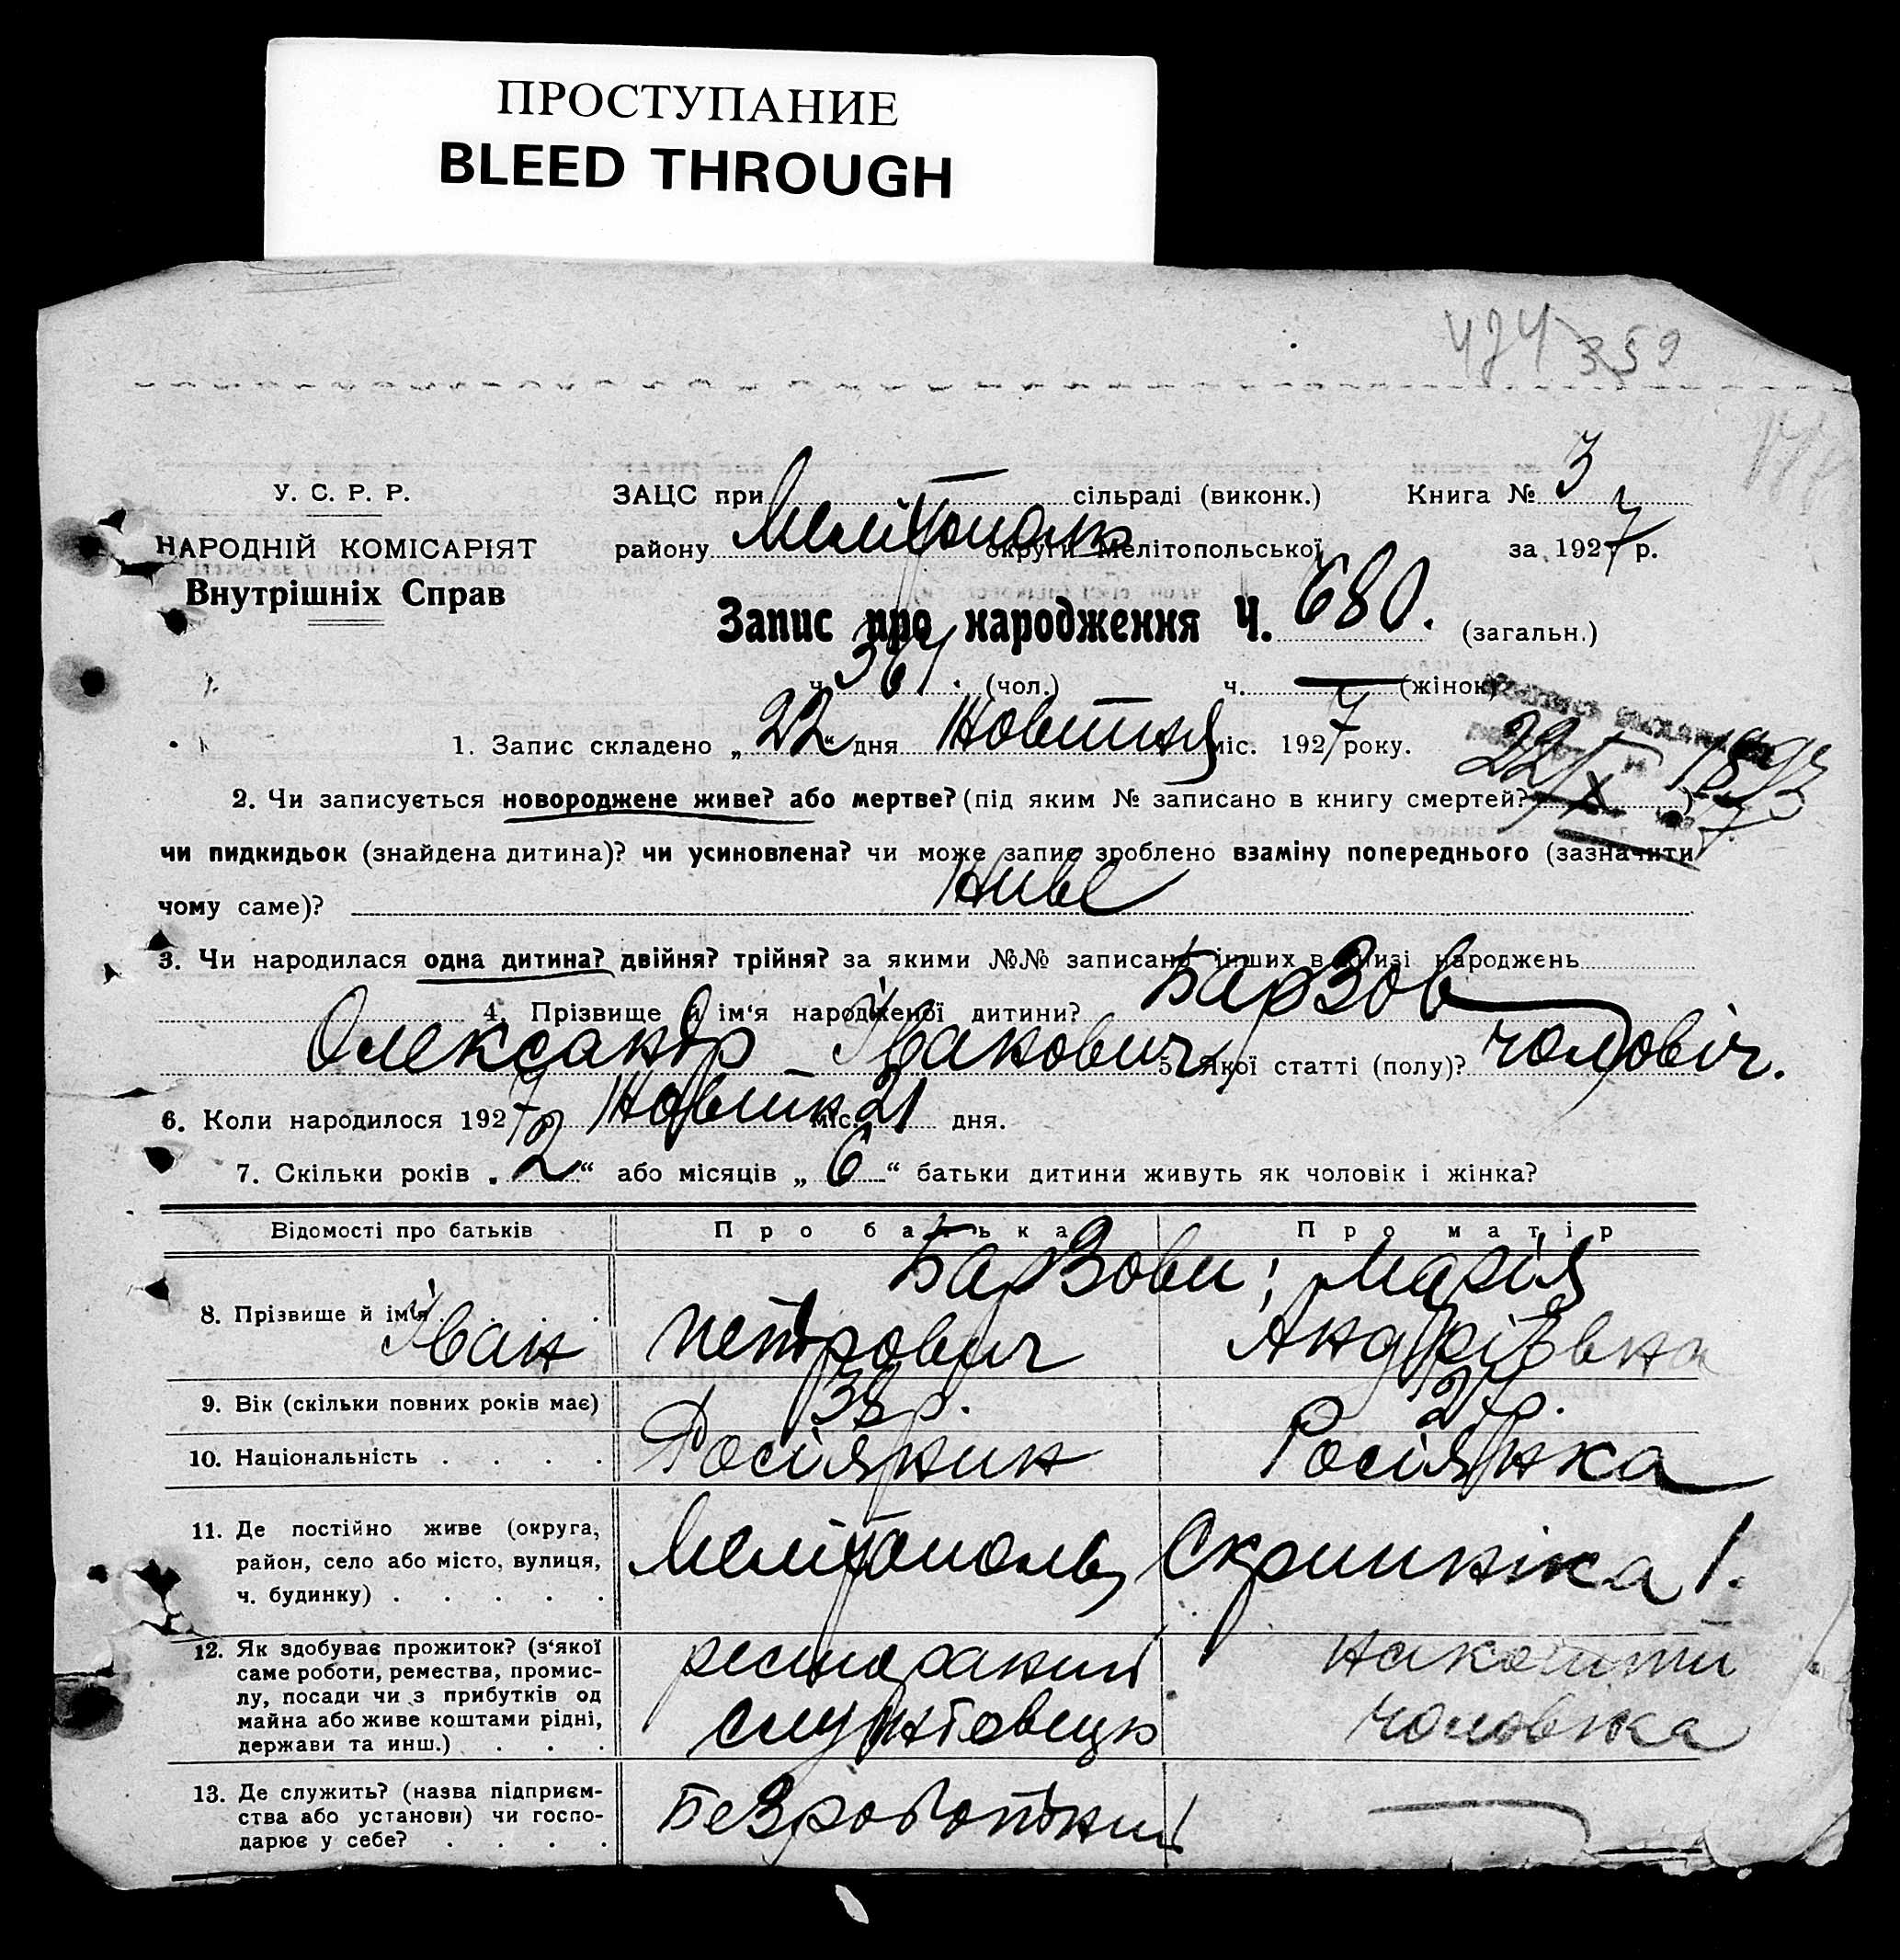 ПРОСТУПАНИЕ
BLEED THROUGH
359
У. С. Р. Р.
ЗАЦС при сільраді (виконк.) Книга № 3
НАРОДНІЙ КОМІСАРІЯТ
району Мелітополь округи Мелітопольської за 1927 р.
Внутрішніх Справ
Запис про народження Ч. 680. (загальн.)
ч. 361. (чол.) ч. — (жінок)
1. Запис складено „22“ дня Жовтня міс. 1927 року.
22/X 1893
2. Чи записується новороджене живе? або мертве? (під яким № записано в книгу смертей? )
чи пидкидьок (знайдена дитина)? чи усиновлена? чи може запис зроблено взаміну попереднього (зазначити
чому саме)? Живе
3. Чи народилася одна дитина? двійня? трійня? за якими №№ записано інших в книзі народжень
4. Прізвище й ім'я народженої дитини? Барзов
Олександр Іванович 5. Якої статті (полу)? чоловіч.
6. Коли народилося 1927 р. Жовтн міс. 21 дня.
7. Скільки років „2“ або місяців „6“ батьки дитини живуть як чоловік і жінка?
Відомості про батьків Про батька Про матір
Барзови; Марія
8. Прізвище й ім'я . . .
Іван Петрович Андріївна
9. Вік (скільки повних років має) 38 р. 27 р.
10. Національність . . . . Росіянин Росіянка
11. Де постійно живе (округа,
район, село або місто, вулиця,
ч. будинку) . . . . .
Мелітополь, Скрипніка 1.
12. Як здобуває прожиток? (з'якої
саме роботи, ремества, промис-
лу, посади чи з прибутків од
майна або живе коштами рідні,
держави та инш.) . . .
ресторанний
службовець
на кошти
чоловіка
13. Де служить? (назва підприєм-
ства або установи) чи госпо-
дарює у себе? . . . .
Безроботний